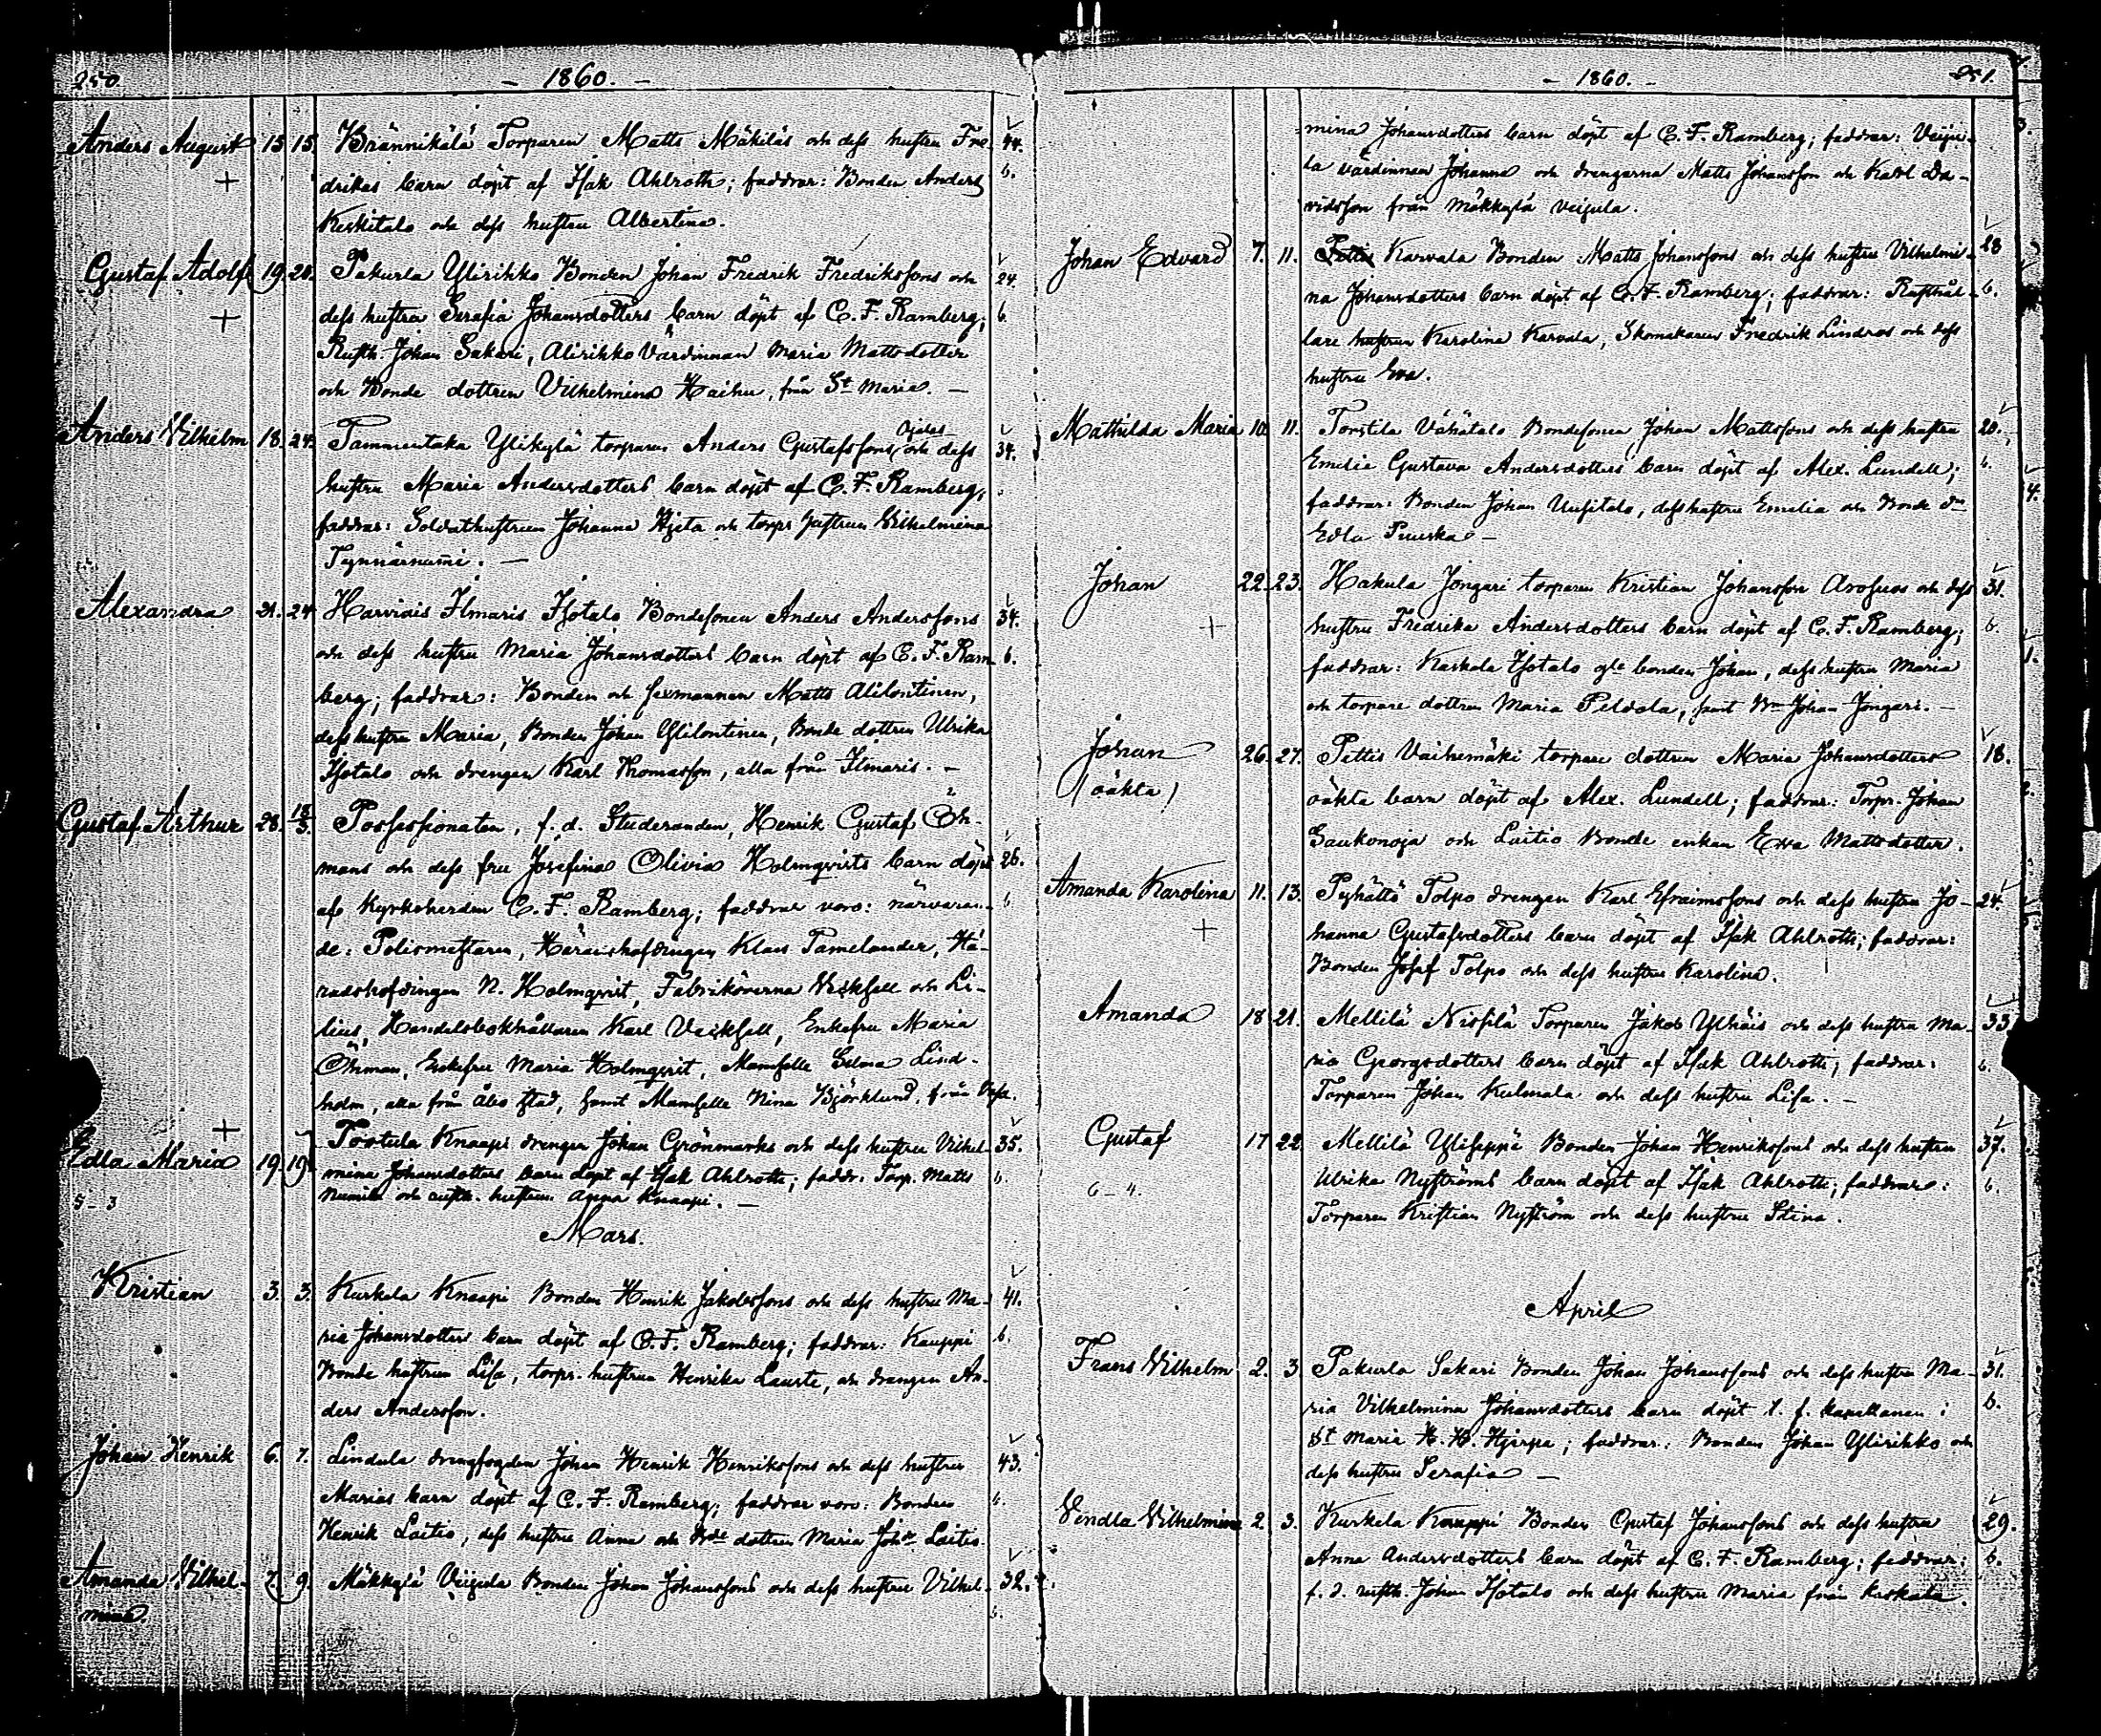 250. - 1860. -
Anders August 15 15. Brännikälä Torparen Matts Mäkiläs och dess hustru Fre- 44.
+ drikas barn döpt af Isak Ahlroth; faddrar: Bonden Anders 6.
Keskitalo och dess hustru Albertina.
Gustaf Adolf 19. 20. Pakurla Ylirihko Bonden Johan Fredrik Fredrikssons och 24.
+ dess hustru Serafia Johansdotters barn döpt af C. F. Ramberg; 6.
Rusth. Johan Sakari, Alirihko Värdinnan Maria Mattsdotter
och Bonde dottren Vilhelmina Haihu, från St Maria. -
Anders Vilhelm 18. 24. Tammentaka Ylikylä torparen Anders Gustafssons Ojalas och dess 34.
hustru Maria Andersdotters barn döpt af C. F. Ramberg,
faddrar: Soldathustrun Johanna Hjeta och torpr hustrun Vilhelmina
Tynnärnummi. -
Alexandra 21. 24 Harviais Ilmaris Isotalo Bondesonen Anders Anderssons 34.
och dess hustru Maria Johansdotters barn döpt af C. F. Ram- 6.
berg; faddrar: Bonden och sexmannen Matts Alilontinen,
dess hustru Maria, Bonden Johan Ylilontinen, Bonde dottren Ulrika
Isotalo och drengen Karl Thomasson, alla från Ilmaris. -
Gustaf Arthur 28. 18/3. Possessionaten, f. d. Studeranden, Henrik Gustaf Öh-
mans och dess fru Josefina Olivia Holmqvists barn döpt 26.
af Kyrkoherden C. F. Ramberg; faddrar voro: närvaran- 6
de: Polismästaren, Häradshöfdingen Klas Tamelander, Hä-
radshöfdingen N. Holmqvist, Fabrikörerna Veckfell och Li-
lius, Handelsbokhållaren Karl Veckfell, Enkefru Maria
Öhman, Enkefru Maria Holmqvist, Mamselle Selma Lind-
holm, alla från Åbo stad, samt Mamselle Nina Björklund, från
+
Edla Maria 19 19 Tortula Knaapi drengen Johan Grönmarks och dess hustru Vilhel- 35.
mina Johansdotters barn döpt af Isak Ahlroth; faddr. Torp. Matts 6.
5-3 Numila och rusth. hustrun Anna Knaapi. -
Mars.
Kristian 3. 3. Kurkela Knaapi Bonden Henrik Jakobssons och dess hustru Ma- 41.
ria Johansdotters barn döpt af C. F. Ramberg; faddrar: Kauppi 6.
Bonde hustrun Lisa, torpr. hustrun Henrika Laurte, och drengen An-
ders Andersson.
Johan Henrik 6. 7. Lindula drengfogden Johan Henrik Henrikssons och dess hustru 43.
Marias barn döpt af C. F. Ramberg; faddrar voro: Bonden 6.
Henrik Laitio, dess hustru Anna och Bde dottren Maria Johdr Laitio.
Amanda Vilhel- 7. 9. Mäkkylä Veijula Bonden Johan Johanssons och dess hustru Vilhel- 32.
mina. 6.
- 1860. - 251.
mina Johansdotters barn döpt af C. F. Ramberg; faddrar: Veiju-
la värdinnan Johanna och drengarna Matts Johansson och Karl Da-
vidsson från Mäkkylä Veijula.
Johan Edvard 7. 11. Karvala Bonden Matts Johanssons och dess hustru Vilhelmi- 28
na Johansdotters barn döpt af C. F. Ramberg; faddrar: Rusthål- 6.
lare hustrun Karolina Karvala, Skomakaren Fredrik Lindros och dess
hustru Eva.
Mathilda Maria 10 11. Torstila Vähätalo Bondesonen Johan Mattssons och dess hustru 20.
Emilia Gustava Andersdotters barn döpt af Alex. Lundell; 6.
faddrar: Bonden Johan Uusitalo, dess hustru Emelia och Bonde dn
Edla Puuska -
Johan 22. 23. Hakula Jongari torparen Kristian Johansson och dess 31.
+ hustru Fredrika Andersdotters barn döpt af C. F. Ramberg; 6.
faddrar: Kaskala Isotalo gle bonden Johan, dess hustru Maria
och torpare dottren Maria Peldola, samt Bn Johan Jongari. -
Johan 26. 27. Pettis Vaihemäki torpare dottren Maria Johansdotters 18.
(oäkta) oäkta barn döpt af Alex. Lundell; faddrar: Torpr. Johan
Saukonoja och Laitio Bonde enkan Eva Mattsdotter.
Amanda Karolina 11. 13. Pyhältö Tolpo drengen Karl Efraimssons och dess hustru Jo- 24.
+ hanna Gustafsdotters barn döpt af Isak Ahlroth; faddrar:
Bonden Josef Tolpo och dess hustru Karolina.
Amanda 18 21. Mellilä Nisfilä Torparen Jakob Ylhäis och dess hustru Ma- 33
ria Georgsdotters barn döpt af Isak Ahlroth; faddrar: 6.
Torparen Johan Kulmala och dess hustru Lisa. -
Gustaf 17 22 Mellilä Yliseppä Bonden Johan Henrikssons och dess hustru 37.
6-4. Ulrika Nyströms barn döpt af Isak Ahlroth; faddrar: 6.
Torparen Kristian Nyström och dess hustru Stina.
April
Frans Vilhelm 2. 3 Pakurla Sakari Bonden Johan Johanssons och dess hustru Ma- 31.
ria Vilhelmina Johansdotters barn döpt t. f. kapellanen i 6.
St Maria K. H. Hjerpe; faddrar: Bonden Johan Ylirihko och
dess hustru Serafia -
Vendla Vilhelmina 2. 3. Kurkela Kauppi Bonden Gustaf Johanssons och dess hustru 29.
Anna Andersdotters barn döpt af C. F. Ramberg; faddrar: 6.
f. d. rusth. Johan Isotalo och dess hustru Maria från Kaskala.